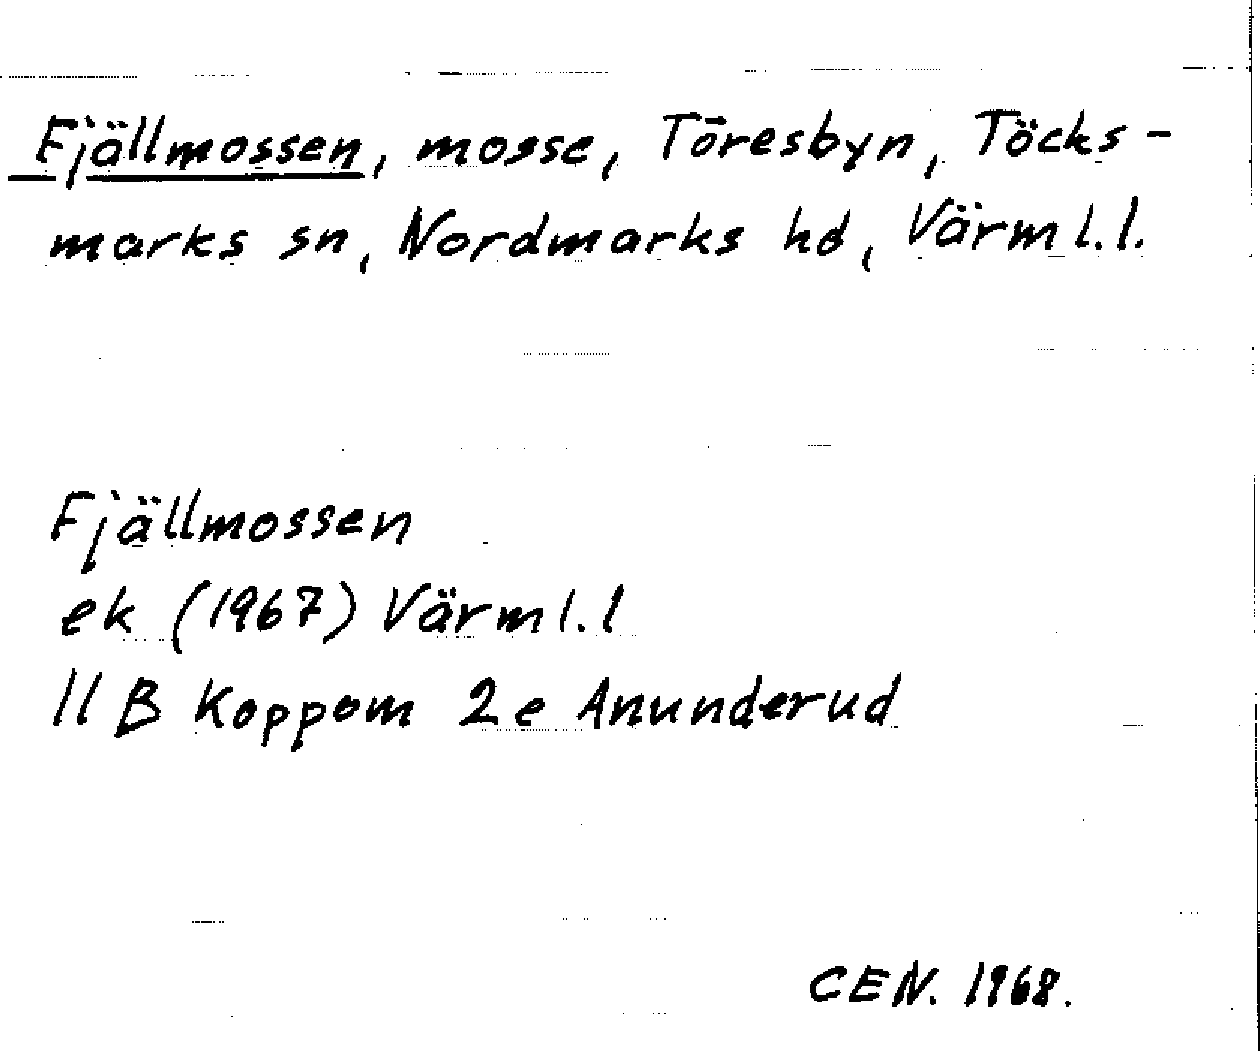 Fjällmossen, mosse, Töresbyn, Töcks-
marks sn, Nordmarks hd, Värml.l.
Fjällmossen
ek (1967) Värml.l
11 B Koppom 2e Anunderud
CEN. 1968.